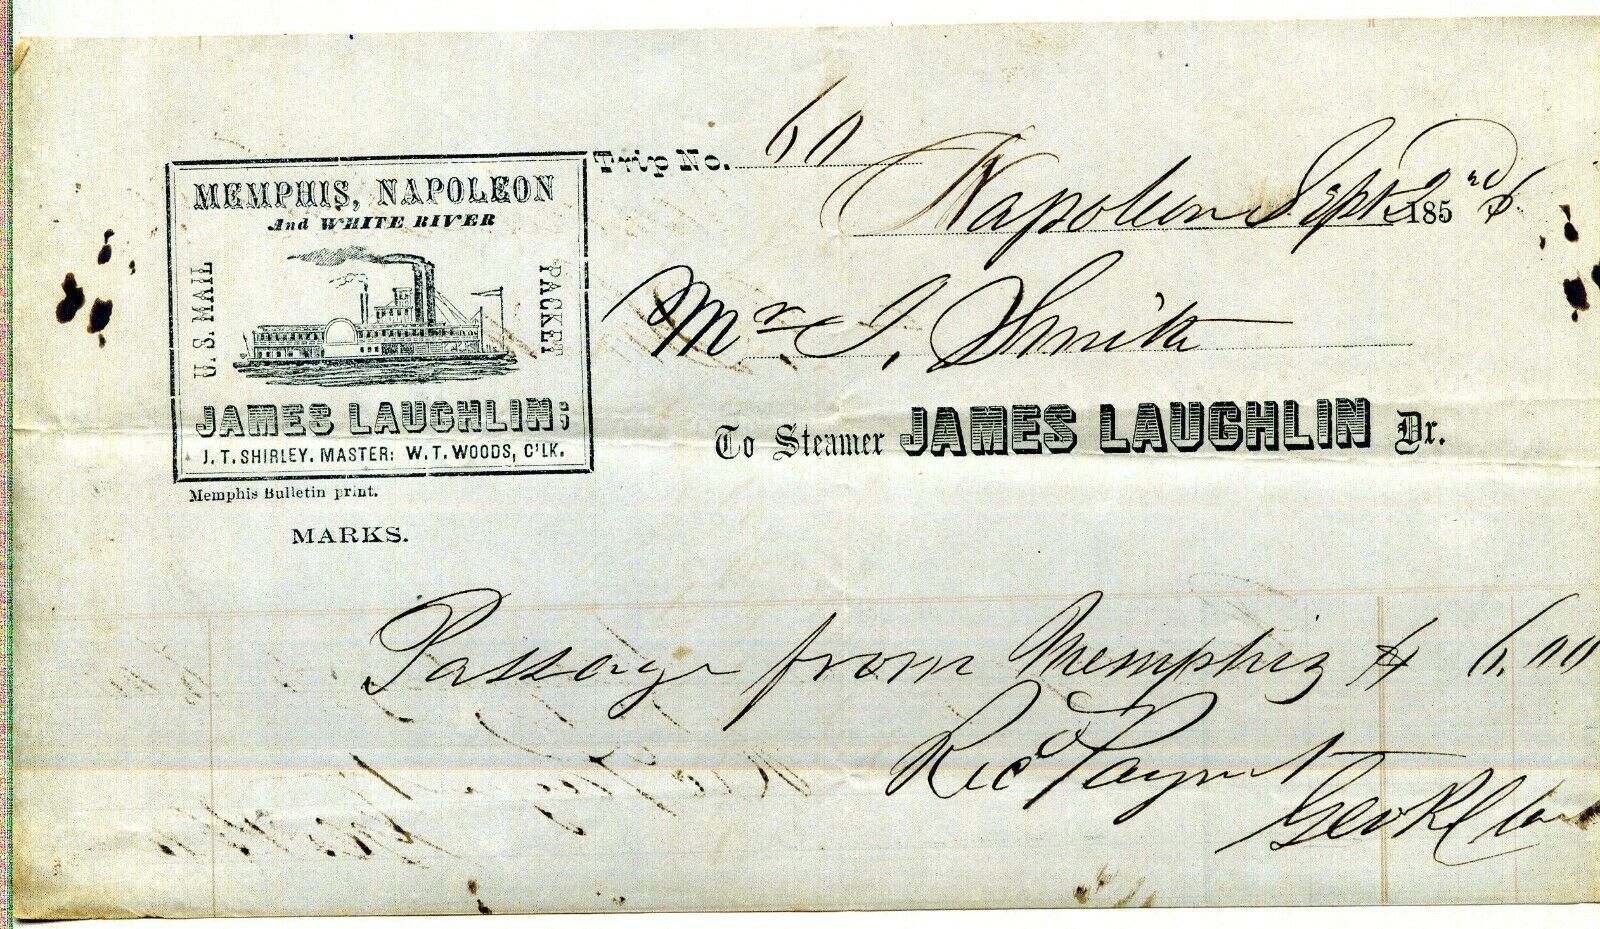 MEMPHIS, NAPOLEON
And WHITE RIVER
U.S. MAIL
PACKET
JAMES LAUGHLIN;
J. T. SHIRLEY. MASTER: W. T. WOODS, C'LK.
Memphis Bulletin print.
MARKS.
Trip No. 60
Napoleon Sept 2nd 1856
Mr J. Smith
To Steamer JAMES LAUGHLIN Dr.
Passage from Memphis $ 6.00
Recd Paymnt
Geo